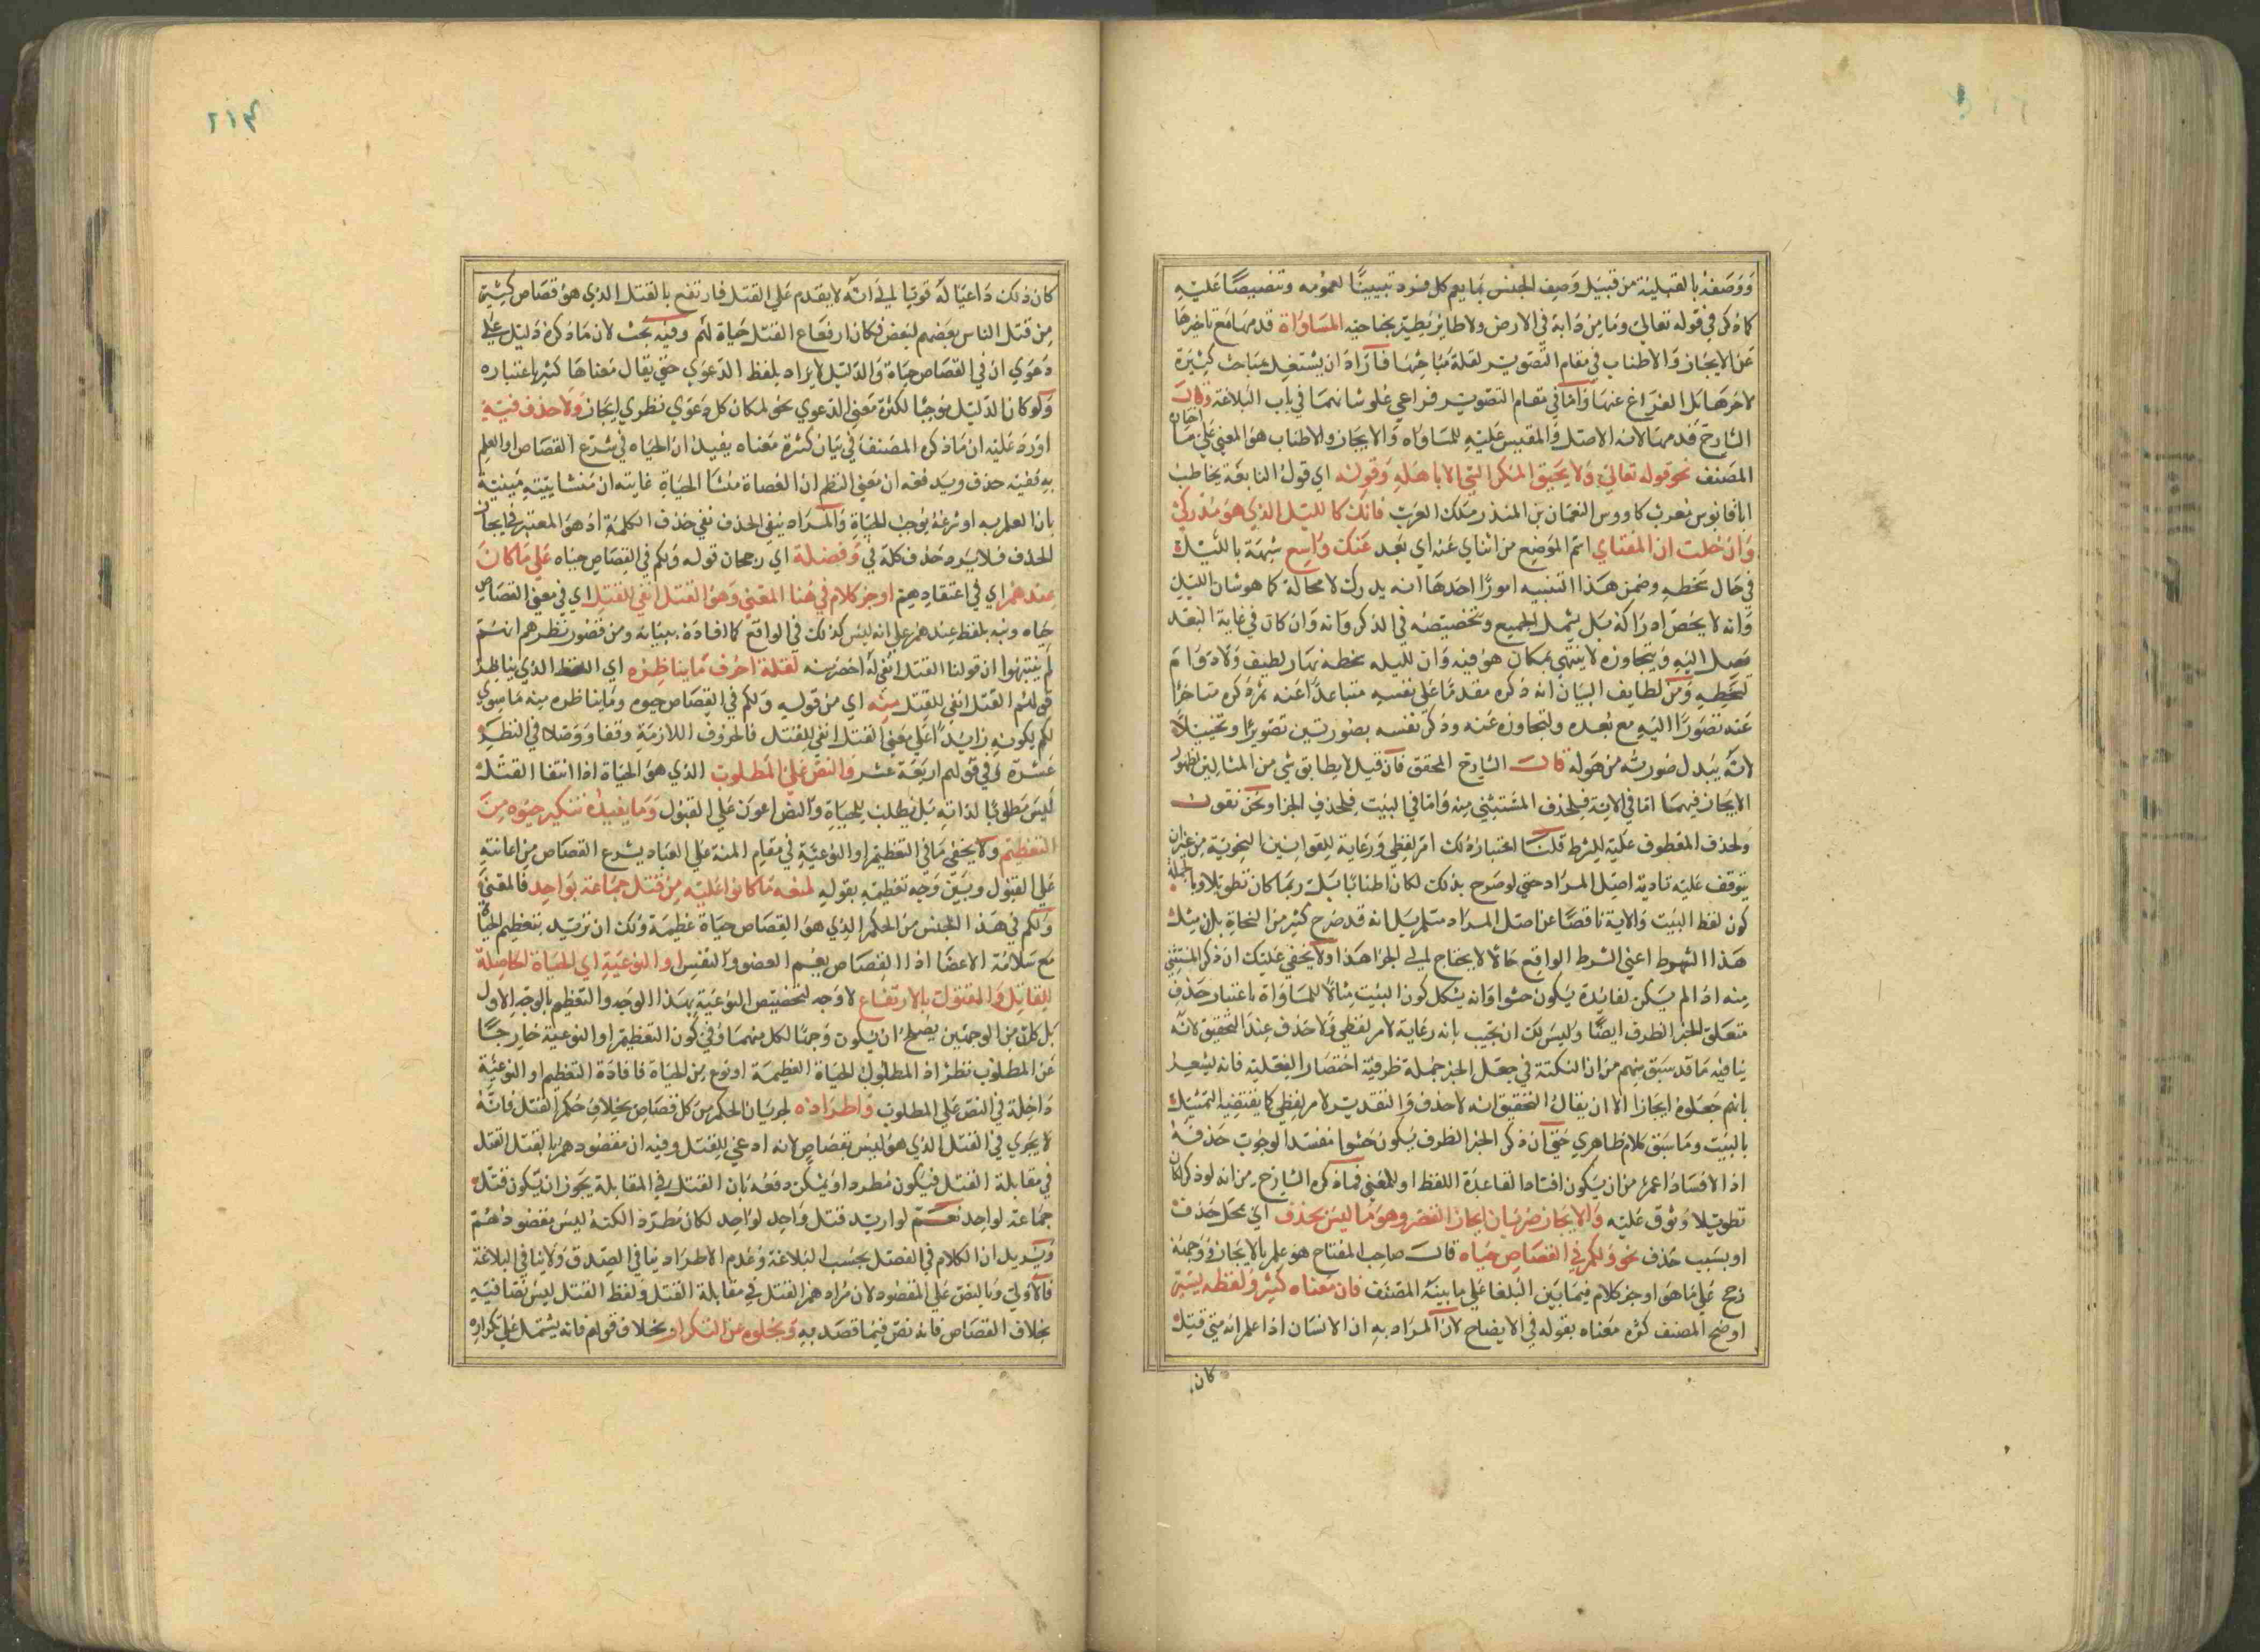 ووصفه بالقبلية من قبيل وصف الجنس بما يعم كل فرد تبيينا لعمومه وتنصيصا عليه
كما ذكر في قوله تعالى وما من دابة في الارض ولا طائر يطير بجناحيه المساواة قدمها مع تاخيرها
عن الايجاز والاطناب في مقام التصوير لقلة مباحثها فاراد ان يشتغل بمباحث كثيرة
لاخرها بل الفراغ عنها واما في مقام التصوير فراعي علو شانهما في باب البلاغة وقال
الشارح قدمها لانه الاصل والمقيس عليه للمساواه والايجاز والاطناب هو المعني على ما اختاره
المصنف نحو قوله تعالى ولا يحيق المكر السيئ الا باهله وقوله اي قول النابغة يخاطب
ابا قابوس نعمان بن المنذر ملك العرب فانك كالليل الذي هو مدركي
وان خلت ان المنتاي اسم الموضع من انتاي عنه اي بعد عنك واسع شبهه بالليل
في حال سخطه وضمن هذا التنبيه امورا احدها انه يدرك لا محالة كما هو شان الليل
وانه لا يخص ادراكه بل يشمل الجميع وتخصيصه في الذكر وانه وان كان في غاية البعد
يصل اليه ويتجاوزه لا ينتهي بمكان هو فيه وان لليله سخطه نهار لطيف ولا دوام
لسخطه ومن لطايف البيان انه ذكره مقدما على نفسه متباعدا عنه ثم ذكره متاخرا
عنه تصورا اليه مع بعده ولتجاوزه عنه وذكر نفسه بصورتين تصويرا وتخييلا
لانه يبدل صورته من هوله قال الشارح المحقق فان قيل لا يطابق شي من المثالين لظهور
الايجاز فيهما اما في الاية فلحذف المستثني منه واما في البيت فلحذف الجزا ونحن نقول
ولحذف المعطوف عليه للشرط قلنا اعتبار ذلك امر لفظي ورعاية للقوانين النحوية من غير ان
يتوقف عليه تادية اصل المراد حتى لو صرح بذلك لكان اطنابا بل ربما كان تطويلا وبالجملة
كون لفظ البيت والاية ناقصا عن اصل المراد متلم بل انه قد صرح كثير من النحاة بان مثل
هذا الشرط اعني الشرط الواقع حالا لا يحتاج الى الجزا هذا ولا يخفى عليك ان ذكر المستثني
منه اذا لم يكن لفائدة يكون حشوا وانه يشكل كون البيت مثالا للمساواة باعتبار حذف
متعلق الخبر الظرف ايضا وليس لك ان تجيب بانه رعاية لامر لفظي ولا حذف عند التحقيق لانه
ينافيه ما قد سبق منهم من ان النكتة في جعل الخبر جملة ظرفية اختصار الفعلية فانه يشعر
بانهم جعلوه ايجازا الا ان يقال التحقيق انه لا حذف والتقدير لامر لفظي كما يقتضيه التمثيل
بالبيت وما سبق كلام ظاهري حتى ان ذكر الخبر الظرف يكون حشوا مفسدا لوجوب حذفه
اذ الافساد اعم من ان يكون افسادا لقاعدة اللفظ او للمعني فما ذكره الشارح من انه لو ذكر كان
تطويلا وثوق عليه والايجاز ضربان ايجاز القصر وهو ما ليس بحذف اي بمحل حذف
او بسبب حذف نحو ولكم في القصاص حياه قال صاحب المفتاح هو علم بالايجاز ووجهه
رجح على ما هو اوجز كلام فيما بين البلغا على ما بينه المصنف فان معناه كثير ولفظه يسير
اوضح المصنف كثره معناه بقوله في الايضاح لان المراد به ان الانسان اذا علم انه متى قتل
كان
٢١٣
كان ذلك داعيا له قويا الى انه لا يقدم على القتل فارتفع بالقتل الذي هو قصاص كثير
من قتل الناس بعضهم لبعض فكان ارتفاع القتل حياة لهم وفيه بحث لان ما ذكره دليل على
دعوي ان في القصاص حياة والدليل لا يراد بلفظ الدعوي حتى يقال معناها كثير باعتباره
ولو كان الدليل موجبا لكثرة معنى الدعوي نحو لمكان كل دعوي نظري ايجاز ولا حذف فيه
اورد عليه ان ما ذكره المصنف في بيان كثرة معناه يفيد ان الحياه في شرع القصاص او العلم
به ففيه حذف ويدفعه ان معنى النظم ان القصاص منشا الحياة غايته ان منشاييته مبنية
بان العلم به او شرعه يوجب الحياة والمراد بنفي الحذف نفي حذف الكلمة اذ هو المعتبر في ايجاز
الحذف فلا يرد حذف كلة في وفضله اي رجحان قوله ولكم في القصاص حياه على ما كان
عندهم اي في اعتقادهم اوجز كلام في هذا المعنى وهو القتل انفى للقتل اي في معنى القصاص
حياه ونبه بلفظ عندهم على انه ليس كذلك في الواقع كما افاده ببيانه ومن قصور نظرهم انهم
لم ينتبهوا ان قولنا القتل انفى له اخصر منه لقلة احرف ما يناظره اي اللفظ الذي يناظر
قولهم القتل انفى للقتل منه اي من قوله ولكم في القصاص حيوه وما يناظره منه ما سوي
لكم لكونه زايدا على معنى القتل انفى للقتل فالحروف اللازمة وقفا ووصلا في النظير
عشرة وفي قولهم اربعة عشر والنص على المطلوب الذي هو الحياة اذ انتفا القتل
ليس مطلوبا لذاته بل يطلب للحياة والنص اعون على القبول وما يفيده تنكير حيوه من
التعظيم ولا يخفى ما في التعظيم او النوعية في مقام المنة على العباد بشرع القصاص من اعانته
على القبول وبين وجه تعظيمه بقوله لمنعه ما كانوا عليه من قتل جماعة بواحد فالمعنى
ولكم في هذا الجنس من الحكم الذي هو القصاص حياة عظيمة ولك ان تريد بتعظيم الحياة
مع سلامة الاعضا اذ القصاص يعم العضو والنفس او النوعية اي الحياة الحاصلة
للقاتل والمقتول بالارتفاع لا وجه لتخصيص النوعية بهذا الوجه والتعظيم بالوجه الاول
بل كل من الوجهين يصلح ان يكون وجها لكل منهما وفي كون التعظيم او النوعية خارجا
عن المطلوب نظر اذ المطلوب الحياة العظيمة او نوع من الحياة فافادة التعظيم او النوعية
داخلة في النص على المطلوب واطراده لجريان الحكم من كل قصاص بخلاف حكم القتل فانه
لا يجري في القتل الذي هو ليس بقصاص لانه ادعى للقتل وفيه ان مقصودهم بالقتل القتل
في مقابلة القتل فيكون مطردا ويمكن دفعه بان القتل في المقابلة يجوز ان يكون قتل
جماعة لواحد نعم لو اريد قتل واحد لواحد لكان مطرد الكنه ليس مقصودهم
ويزيد ان الكلام في الفصل بحسب البلاغة وعدم الاطراد ينافي الصدق ولا ينافي البلاغة
فالاولى وبالنص على المقصود لان مرادهم القتل في مقابلة القتل ولفظ القتل ليس نصا فيه
بخلاف القصاص فانه نص فيما قصد به وبخلوه عن التكرار بخلاف قولهم فانه يشتمل على تكراره